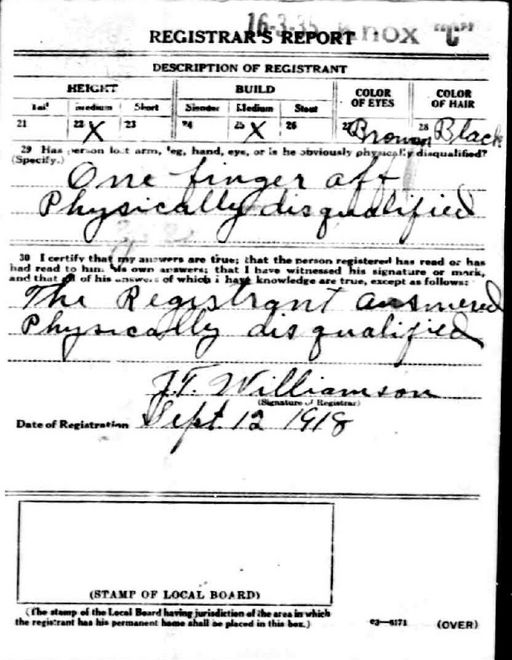 16-3-35 Knox "C"
REGISTRAR'S REPORT
DESCRIPTION OF REGISTRANT
HEIGHT BUILD COLOR OF EYES COLOR OF HAIR
Tall Medium Short Slender Medium Stout
21 22 X 23 24 25 X 26 27 Brown 28 Black
29 Has person lost arm, leg, hand, eye, or is he obviously physically disqualified?
(Specify.)
One finger off
Physically disqualified
30 I certify that my answers are true; that the person registered has read or has
had read to him his own answers; that I have witnessed his signature or mark,
and that all of his answers of which i have knowledge are true, except as follows:
The Registrant answered
Physically disqualified
J.T. Williamson
(Signature of Registrar)
Date of Registration Sept. 12 1918
(STAMP OF LOCAL BOARD)
(The stamp of the Local Board having jurisdiction of the area in which
the registrant has his permanent home shall be placed in this box.)
03—6171 (OVER)